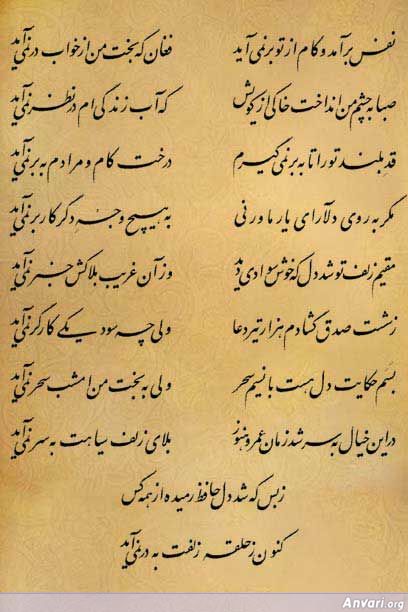 نفس برآمد و کام از تو بر نمی آید فغان که بخت من از خواب در نمی آید
صبا به چشم من انداخت خاکی از کویش که آب زندگی ام در نظر نمی آید
قد بلند تو را تا به بر نمی گیرم درخت کام و مرادم به بر نمی آید
مگر به روی دلآرای یار ما ور نی به هیچ وجه دگر کار بر نمی آید
مقیم زلف تو شد دل که خوش سوادی دید وز آن غریب بلاکش خبر نمی آید
ز شست صدق گشادم هزار تیر دعا ولی چه سود یکی کارگر نمی آید
بسم حکایت دل هست با نسیم سحر ولی به بخت من امشب سحر نمی آید
در این خیال به سر شد زمان عمر و هنوز بلای زلف سیاهت به سر نمی آید
ز بس که شد دل حافظ رمیده از همه کس
کنون ز حلقه زلفت به در نمی آید
Anvari.org